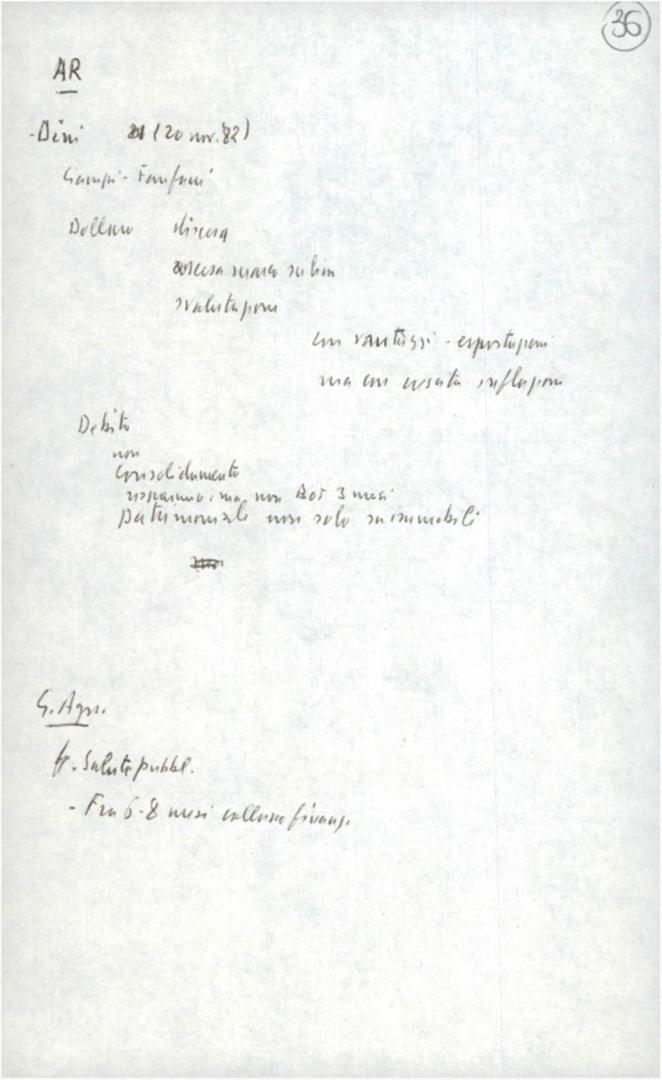 36
AR
- Dini (20 nov. '82)
Ciampi - Fanfani
Dollaro discesa
svalutazioni
con vantaggi - esportazioni
ma con crescita inflazioni
Debito
non
Consolidamento
risparmio: ma non Bot 3 mesi
patrimoniale non solo su immobili
G. Agn.
Salute pubbl.
- Fra 6-8 mesi collasso finanz.